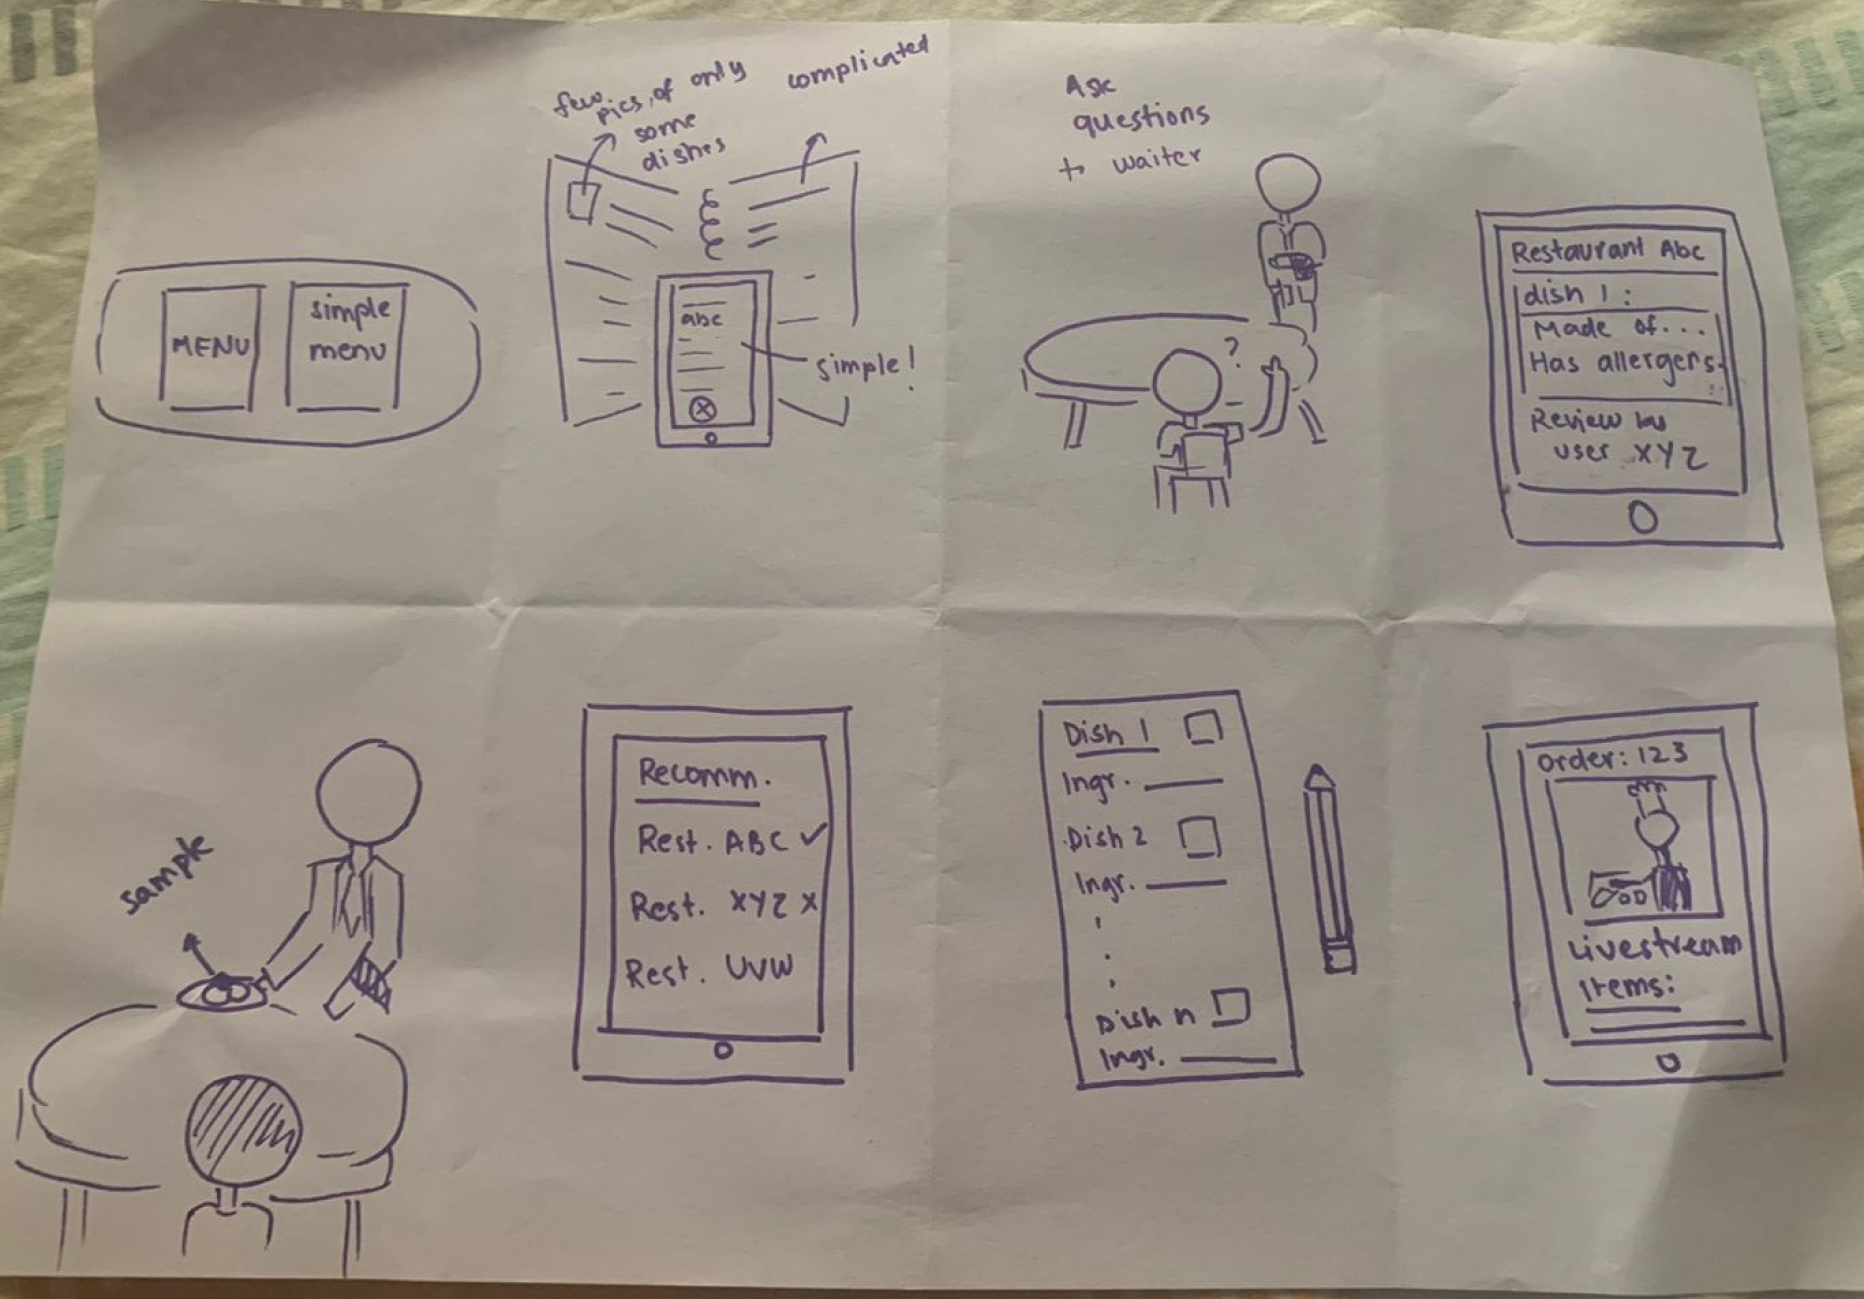 MENU
simple
menu
few
pics, of only
some
dishes
complicated
abc
simple!
Ask
questions
to waiter
?
Restaurant Abc
dish 1:
Made of...
Has allergens.
Review by
user XYZ
sample
Recomm.
Rest. ABC ✓
Rest. XYZ x
Rest. UVW
Dish 1
Ingr.
Dish 2
Ingr.
Dish n
Ingr.
order: 123
Livestream
Items: